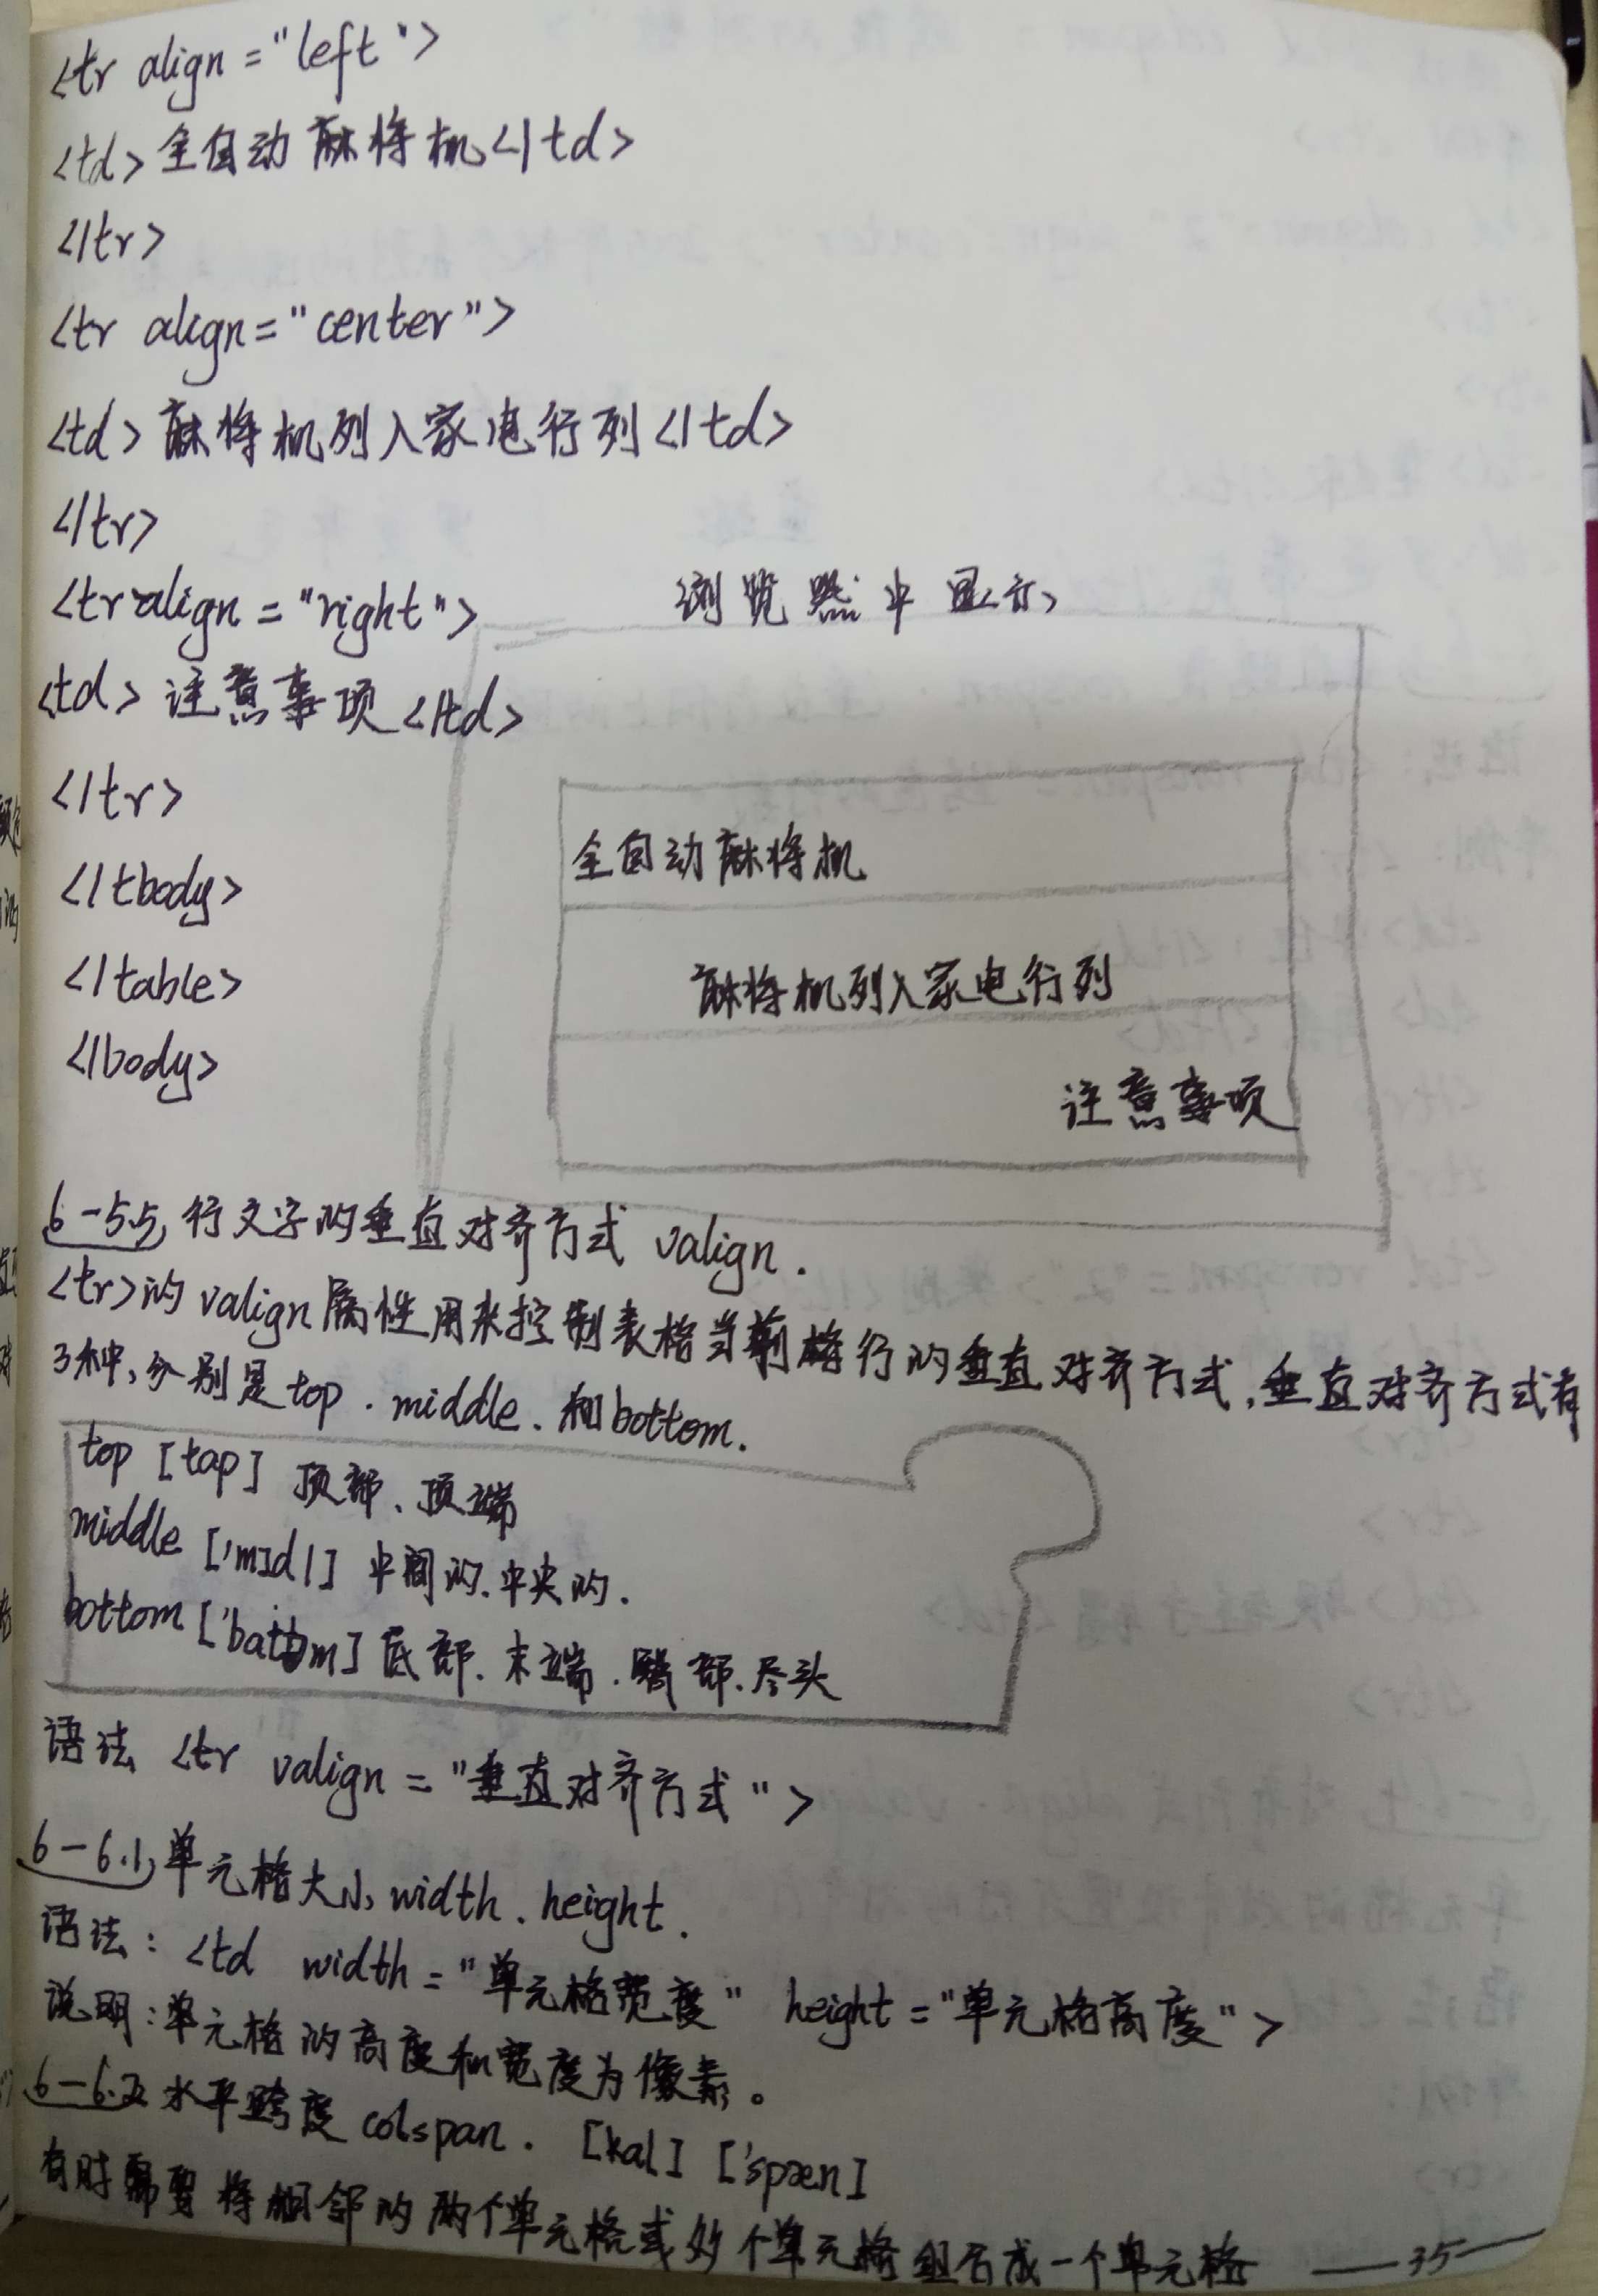 <tr align="left">
<td>全自动麻将机</td>
</tr>
<tr align="center">
<td>麻将机列入家电行列</td>
</tr>
<tr align="right">
浏览器中显示
<td>注意事项</td>
</tr>
</tbody>
</table>
</body>
全自动麻将机
麻将机列入家电行列
注意事项
6-5.5 行文字的垂直对齐方式 valign.
<tr>的valign属性用来控制表格当前行的垂直对齐方式,垂直对齐方式有
3种,分别是top.middle.和bottom.
top [tap] 顶部、顶端
middle ['mɪdl] 中间的.中央的.
bottom ['batəm] 底部.末端.臀部.尽头
语法 <tr valign="垂直对齐方式">
6-6.1 单元格大小 width.height.
语法: <td width="单元格宽度" height="单元格高度">
说明:单元格的高度和宽度为像素。
6-6.2 水平跨度 colspan. [kal] ['spæn]
有时需要将相邻的两个单元格或多个单元格组合成一个单元格
35